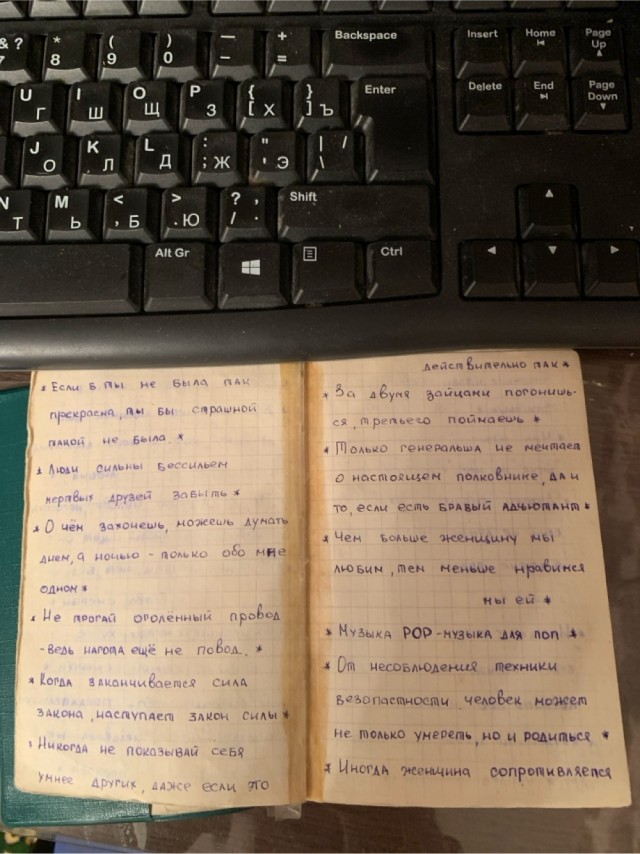 & ? 7
* 8
( 9
) 0
— -
+ =
Backspace
Insert
Home
Page Up
U Г
I Ш
O Щ
P З
{ [ Х
} ] Ъ
Enter
Delete
End
Page Down
J О
K Л
L Д
: ; Ж
" ' Э
| / \
N Т
M Ь
< , Б
> . Ю
? , / .
Shift
Alt Gr
Ctrl
* Если б ты не была так
прекрасна, ты бы страшной
такой не была. *
* Люди сильны бессильем
мертвых друзей забыть *
* О чём захочешь, можешь думать
днем, а ночью - только обо мне
одном *
* Не трогай оголённый провод
- ведь нагота ещё не повод. *
* Когда заканчивается сила
закона, наступает закон силы *
* Никогда не показывай себя
умнее других, даже если это
действительно так *
* За двумя зайцами погонишь-
ся, третьего поймаешь *
* Только генеральша не мечтает
о настоящем полковнике, да и
то, если есть бравый адъютант *
* Чем больше женщину мы
любим, тем меньше нравимся
мы ей *
* Музыка POP - музыка для поп *
* От несоблюдения техники
безопастности человек может
не только умереть, но и родиться *
* Иногда женщина сопротивляется